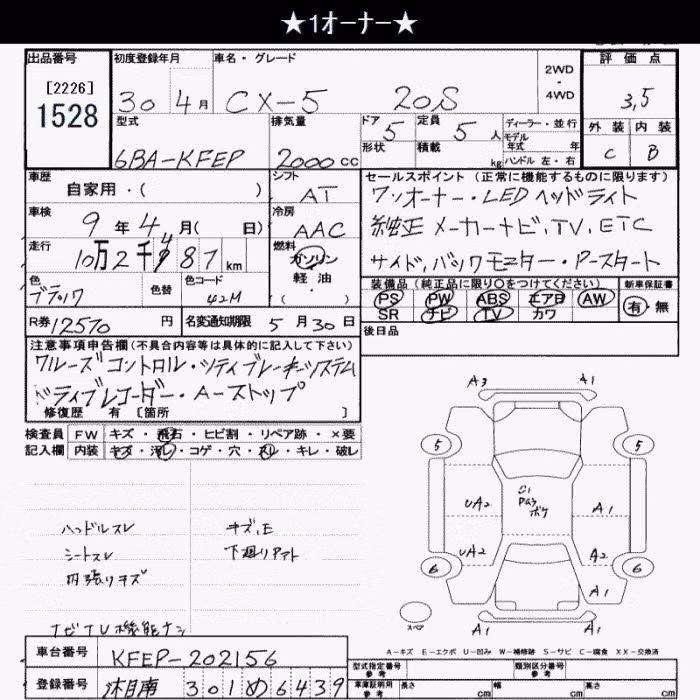 ★1オーナー★
出品番号 初度登録年月 車名・グレード 評価点
[2226]
1528
30 4月 CX-5 20S
2WD・4WD
3,5
型式 排気量 ドア 定員 ディーラー・並行
5 5人 モデル年式 年
外装 内装
6BA-KFEP 2000cc 形状 積載 kg ハンドル 左・右
C B
車歴 シフト セールスポイント (正常に機能するものに限ります)
自家用・( ) AT
ワンオーナー・LEDヘッドライト
車検 冷房
9年 4月( 日) AAC
純正メーカーナビ、TV、ETC
走行 燃料
10万2千 87km ガソリン
軽油・( )
サイド、バックモニター・Pースタート
色 色替 色コード
ブラック 42M
装備品 (純正品に限り○をつけてください) 新車保証書
PS PW ABS エアB AW
SR ナビ TV カワ
有・無
R券 12570円 名変通知期限 5月30日
後日品
注意事項申告欄(不具合内容等は具体的に記入して下さい)
クルーズコントロル・シティブレーキシステム
ドライブレコーダー・Aーストップ
修復歴 有 [箇所 ]
検査員 FW キズ・飛石・ヒビ割・リペア跡・×要
記入欄 内装 キズ・汚レ・コゲ・穴・スレ・キレ・破レ
A3 A1
5 5
S1
PA3
ボケ
UA2 A1
UA2 A2
6 6
A1
スペア
A1 A1
ハンドルスレ キズ、E
シートスレ 下廻りアト
内張りキズ
ナビTV機能ナシ
A-キズ E-エクボ U-凹み W-補修跡 S-サビ C-腐食 XX-交換済
車台番号 KFEP-202156
型式指定番号 参考 類別区分番号 参考
登録番号 301 め 6439
車庫証明用 参考 長さ cm 幅 cm 高さ cm